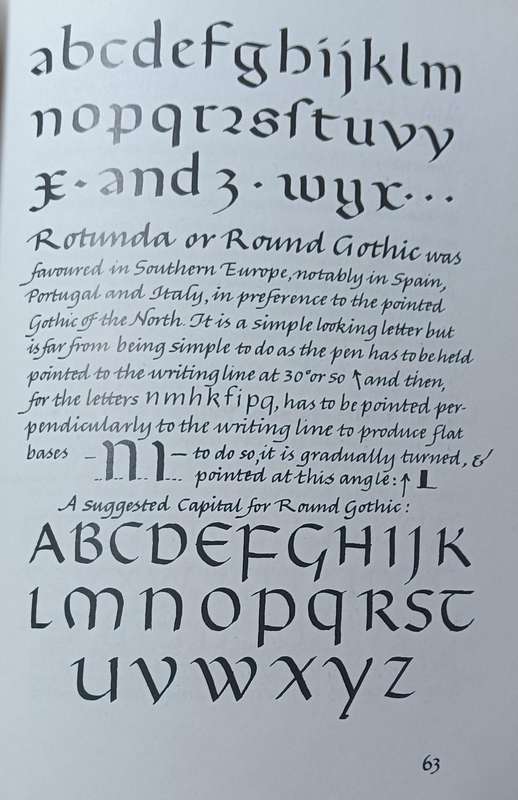 abcdefghijklm
nopqrꝛsſtuvy
x·and ʒ·wyx···
Rotunda or Round Gothic was
favoured in Southern Europe, notably in Spain,
Portugal and Italy, in preference to the pointed
Gothic of the North. It is a simple looking letter but
is far from being simple to do as the pen has to be held
pointed to the writing line at 30° or so ↑ and then,
for the letters nmhkfipq, has to be pointed per-
pendicularly to the writing line to produce flat
bases – m – to do so, it is gradually turned, &
pointed at this angle: ↑ L
A suggested Capital for Round Gothic:
ABCDEFGHIJK
LMNOPQRST
UVWXYZ
63